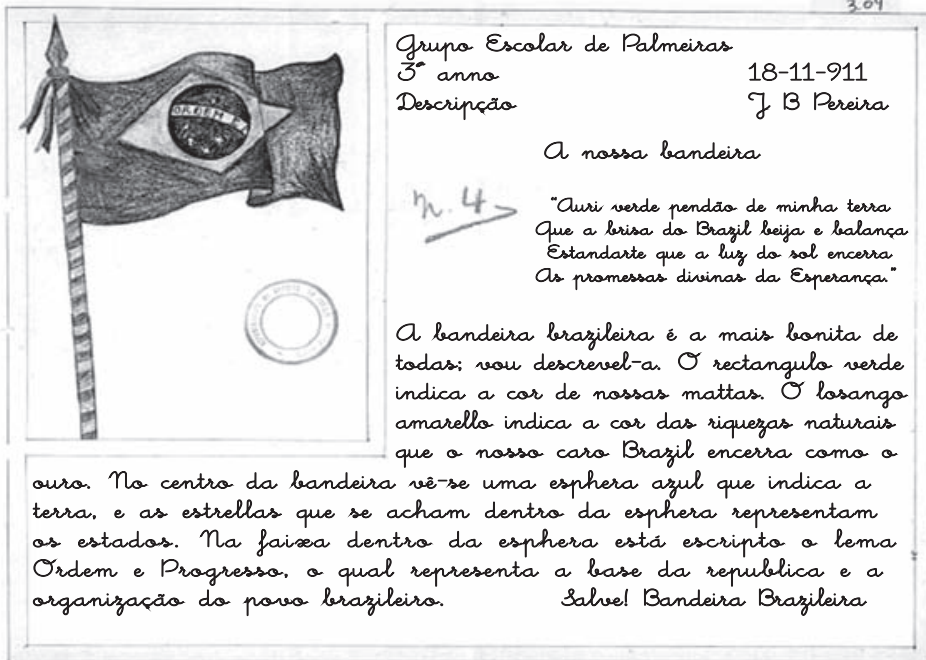 3.09
Grupo Escolar de Palmeiras
3º anno 18-11-911
Descripção J B Pereira
A nossa bandeira
n. 4
"Auri verde pendão de minha terra
Que a brisa do Brazil beija e balança
Estandarte que a luz do sol encerra
As promessas divinas da Esperança."
ORDEM E
A bandeira brazileira é a mais bonita de
todas; vou descrevel-a. O rectangulo verde
indica a cor de nossas mattas. O losango
amarello indica a cor das riquezas naturais
que o nosso caro Brazil encerra como o
ouro. No centro da bandeira vê-se uma esphera azul que indica a
terra, e as estrellas que se acham dentro da esphera representam
os estados. Na faixa dentro da esphera está escripto o lema
Ordem e Progresso, o qual representa a base da republica e a
organização do povo brazileiro. Salve! Bandeira Brazileira